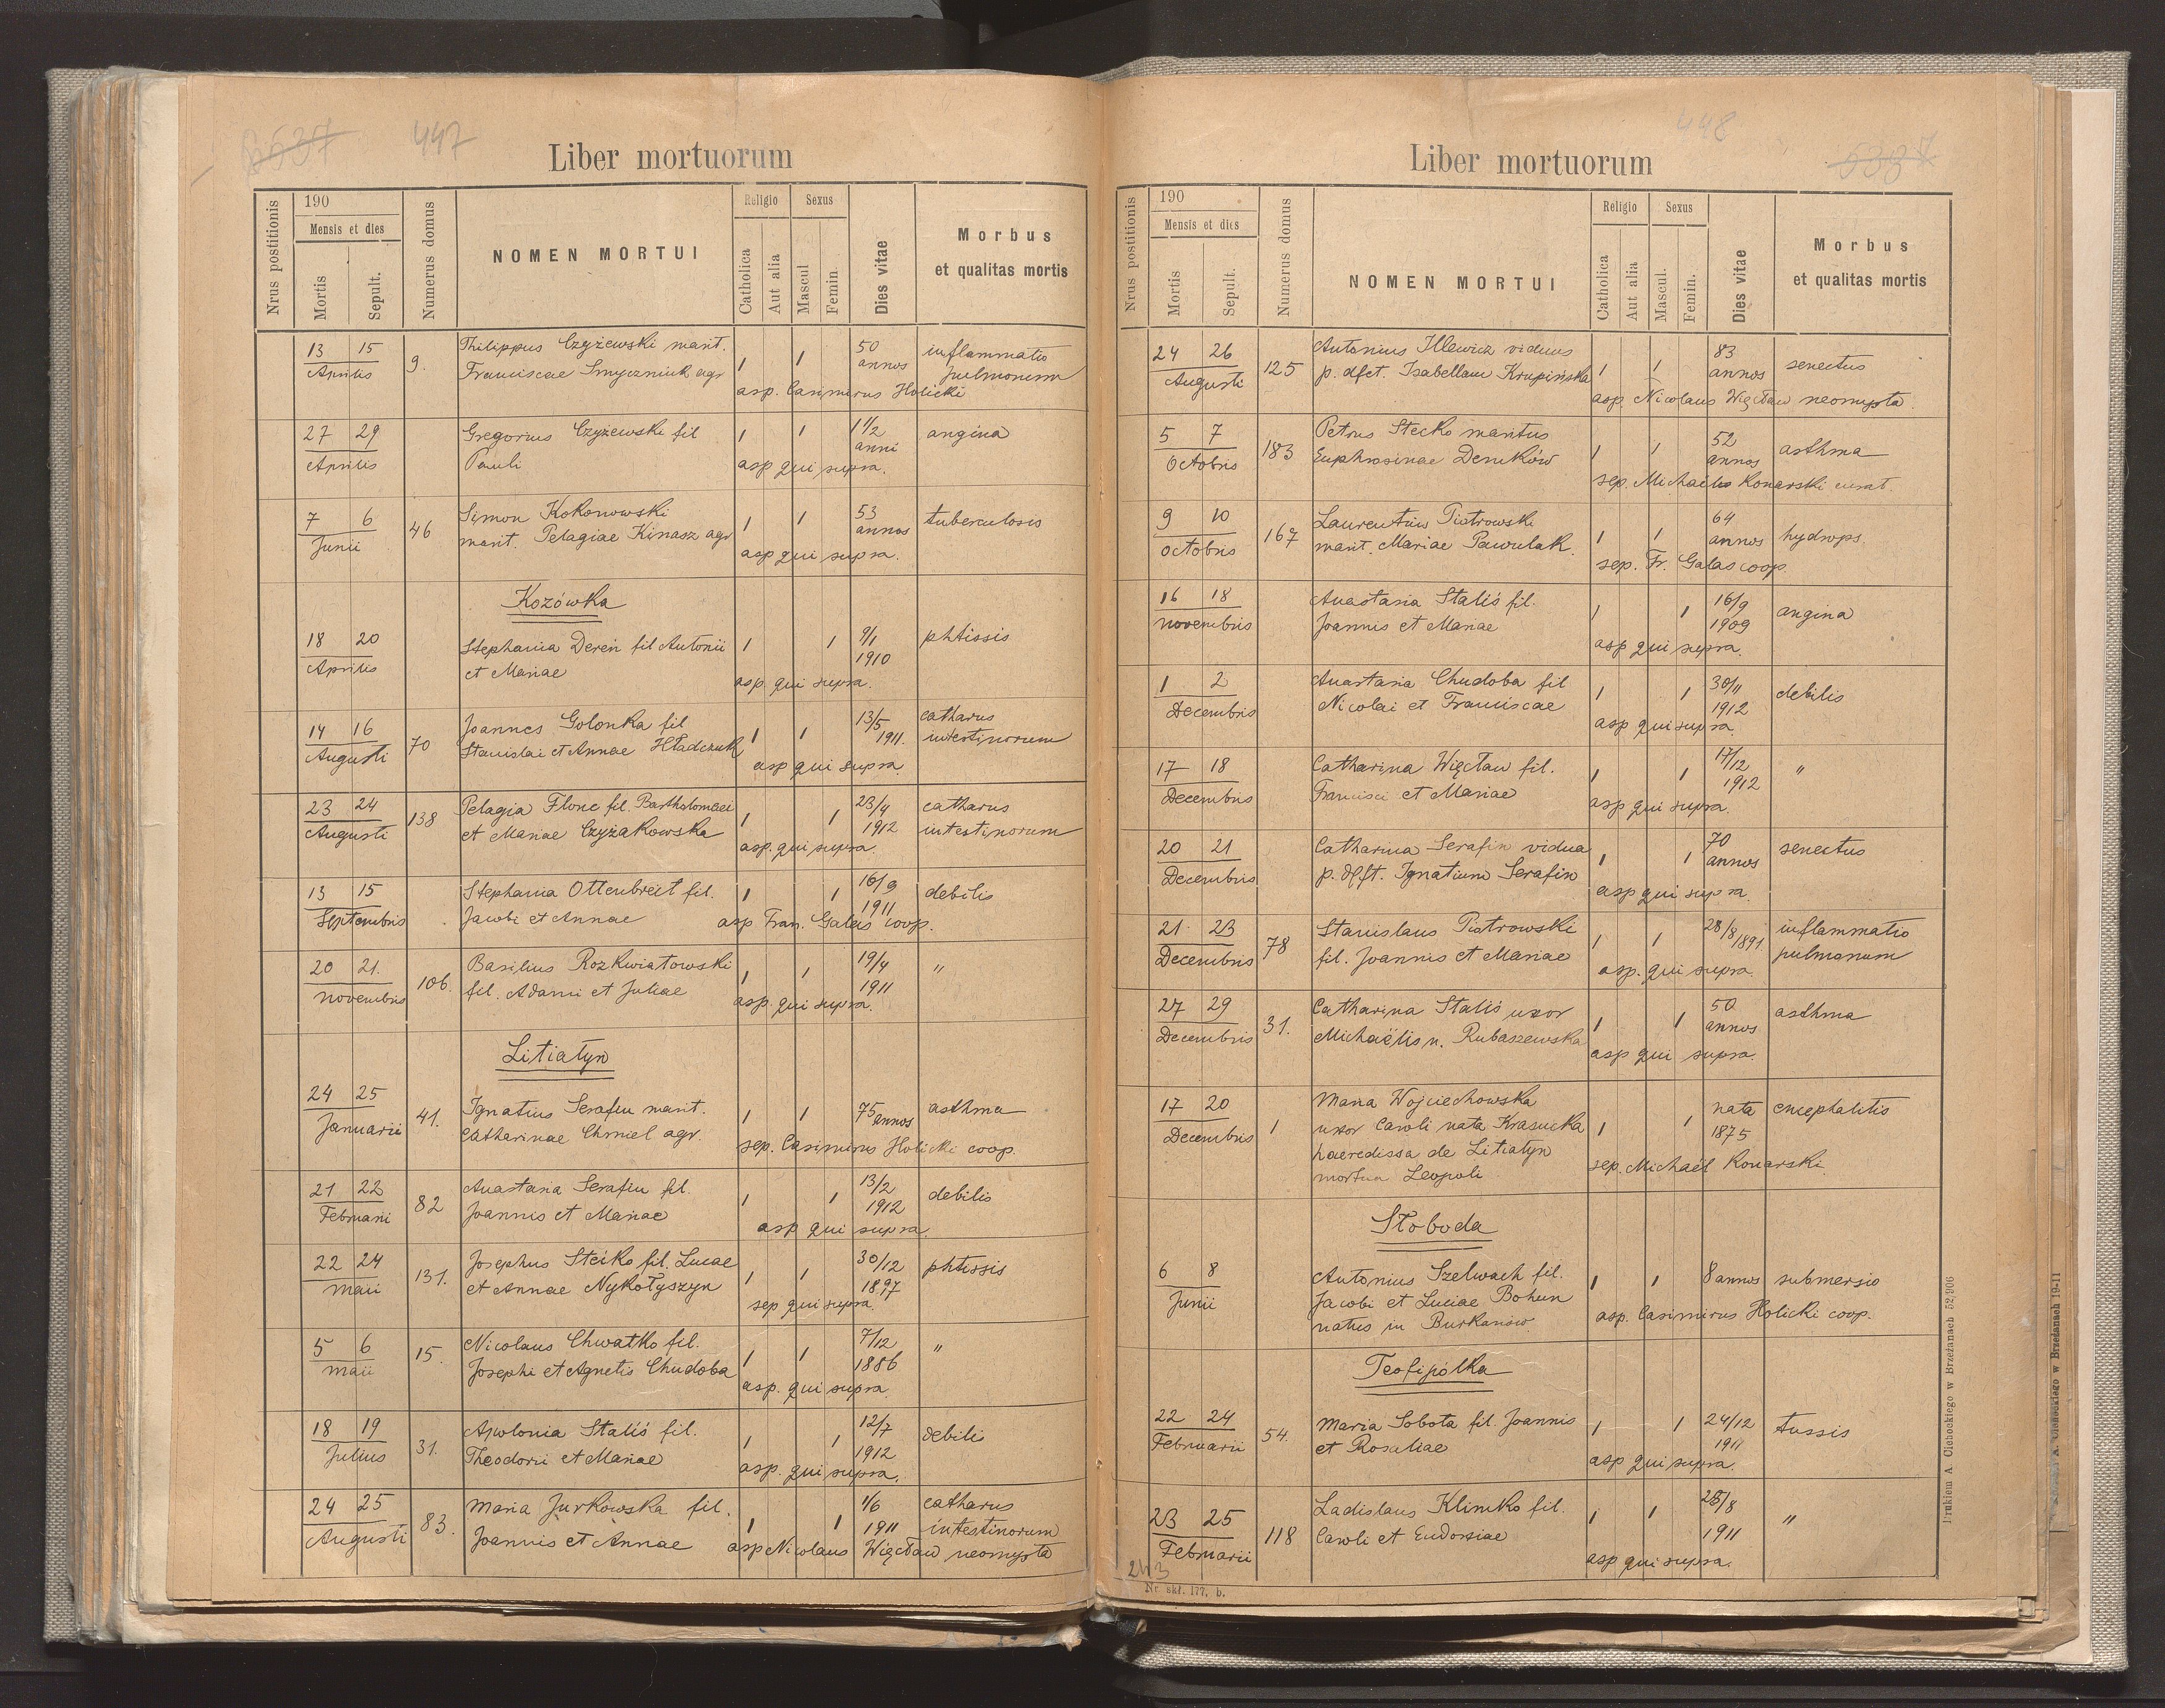 447
Liber mortuorum
Nrus postitionis
190
Mensis et dies
Mortis
Sepult.
Numerus domus
NOMEN MORTUI
Religio
Catholica
Aut alia
Sexus
Mascul
Femin
Dies vitae
Morbus
et qualitas mortis
13 15 Aprilis 9. Philippus Czyżewski marit. 1 1 50 annos inflammatio
Franciscae Smyczniuk agr pulmonum
asp. Casimirus Holicki
27 29 Aprilis Gregorius Czyżewski fil 1 1 1 1/2 anni angina
Pauli
asp qui supra.
7 6 Junii 46 Simon Kokonowski 1 1 53 annos tuberculosis
marit. Pelagiae Kinasz agr
asp qui supra.
Kozówka
18 20 Aprilis Stephania Dereń fil Antonii 1 1 9/1 1910 phtissis
et Mariae
asp. qui supra.
14 16 Augusti 70 Joannes Golonka fil 1 1 13/5 1911. catharus
Stanislai et Annae Hładczuk intestinorum
asp qui supra
23 24 Augusti 138 Pelagia Flonc fil. Bartholomaei 1 1 23/4 1912 catharus
et Mariae Czyżakowska intestinorum
asp. qui supra.
13 15 Septembris Stephania Ottenbreit fil. 1 1 16/9 1911 debilis
Jacobi et Annae
asp Fran. Galas coop.
20 21. novembris 106. Basilius Rozkwiatowski 1 1 19/4 1911 "
fil. Adami et Juliae
asp. qui supra.
Litiatyn
24 25 Januarii 41. Ignatius Serafin marit. 1 1 75 annos asthma
Catharinae Chmiel agr.
sep. Casimirus Holicki coop.
21 22 Februarii 82 Anastasia Serafin fil. 1 1 13/2 1912 debilis
Joannis et Mariae
asp qui supra
22 24 maii 131. Josephus Stećko fil. Lucae 1 1 30/12 1897 phtissis
et Annae Nykołyszyn
sep qui supra.
5 6 maii 15. Nicolaus Chwatko fil. 1 1 7/12 1886 "
Josephi et Agnetis Chudoba
asp. qui supra
18 19 Julius 31. Apolonia Staliś fil. 1 1 12/7 1912 debilis
Theodori et Mariae
asp. qui supra.
24 25 Augusti 83. Maria Jurkowska fil. 1 1 1/6 1911 catharus
Joannis et Annae intestinorum
asp Nicolaus Więcław neomysta
448
Liber mortuorum
Nrus postitionis
190
Mensis et dies
Mortis
Sepult.
Numerus domus
NOMEN MORTUI
Religio
Catholica
Aut alia
Sexus
Mascul.
Femin.
Dies vitae
Morbus
et qualitas mortis
24 26 Augusti 125 Antonius Illewicz viduus 1 1 83 annos senectus
p. dfct. Isabellam Krupińska
asp. Nicolaus Więcław neomysta.
5 7 Octobris 183 Petrus Stecko maritus 1 1 52 annos asthma
Euphrosinae Demków
sep. Michaelis Konarski curat.
9 10 octobris 167 Laurentius Piotrowski 1 1 64 annos hydrops.
marit. Mariae Pawulak.
sep. Fr. Galas coop.
16 18 novembris Anastasia Staliś fil. 1 1 16/9 1909 angina
Joannis et Mariae
asp qui supra.
1 2 Decembris Anastasia Chudoba fil 1 1 30/11 1912 debilis
Nicolai et Franciscae
asp qui supra.
17 18 Decembris Catharina Więcław fil. 1 1 17/12 1912 "
Francisci et Mariae
asp qui supra.
20 21 Decembris Catharina Serafin vidua 1 1 70 annos senectus
p. dfft. Ignatium Serafin
asp qui supra.
21 23 Decembris 78 Stanislaus Piotrowski 1 1 28/8 1891. inflammatio
fil. Joannis et Mariae pulmonum
asp. qui supra.
27 29 Decembris 31. Catharina Staliś uxor 1 1 50 annos asthma
Michaëlis n. Rubaszewska
asp qui supra.
17 20 Decembris 1 Maria Wojciechowska 1 1 nata 1875 encephalitis
uxor Caroli nata Krasucka
haeredissa de Litiatyn
mortua Leopoli
sep. Michaël Konarski.
Słoboda
6 8 Junii Antonius Szelwach fil. 1 1 8 annos submersio
Jacobi et Luciae Bohun
natus in Burkanów.
asp. Casimirus Holicki coop.
Teofipólka
22 24 Februarii 54. Maria Sobota fil. Joannis 1 1 24/12 1911 tussis
et Rosaliae
asp qui supra.
23 25 Februarii 118 Ladislaus Klimko fil. 1 1 25/8 1911 "
Caroli et Eudoxiae
asp qui supra.
243
Nr. skł. 177. b.
Drukiem A. Ciebockiego w Brzeżanach 52,906